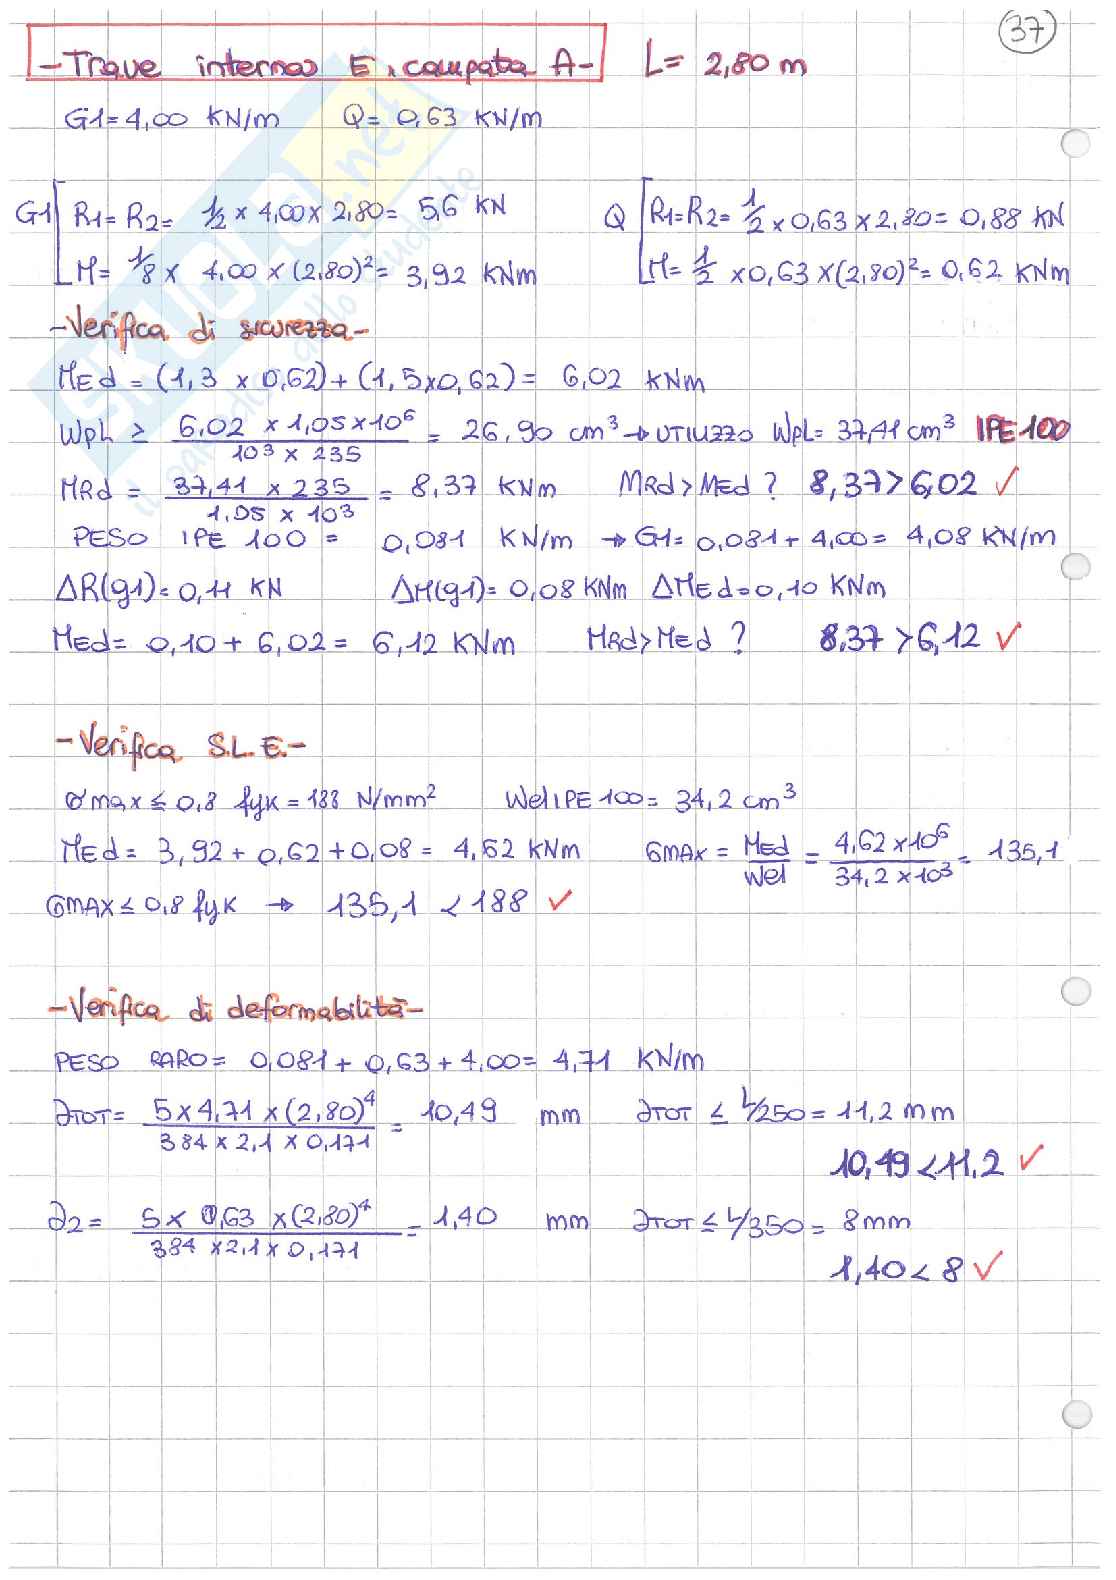 37
-Trave interna E, campata A- L= 2,80 m
G1=4,00 KN/m Q= 0,63 KN/m
G1 R1=R2= 1/2 x 4,00 x 2,80= 5,6 KN
M= 1/8 x 4,00 x (2,80)²= 3,92 KNm
Q R1=R2= 1/2 x 0,63 x 2,80= 0,88 KN
M= 1/2 x 0,63 x (2,80)²= 0,62 KNm
-Verifica di sicurezza-
MEd = (1,3 x 0,62)+(1,5x0,62)= 6,02 KNm
WpL ≥ 6,02 x 1,05x10⁶ / 10³ x 235 = 26,90 cm³ → UTILIZZO WpL= 37,41 cm³ IPE 100
MRd = 37,41 x 235 / 1,05 x 10³ = 8,37 KNm MRd>MEd ? 8,37>6,02 ✓
PESO IPE 100 = 0,081 KN/m → G1= 0,081+ 4,00= 4,08 KN/m
ΔR(g1)= 0,11 KN ΔM(g1)= 0,08 KNm ΔMEd=0,10 KNm
MEd= 0,10+ 6,02= 6,12 KNm MRd>MEd ? 8,37 >6,12 ✓
-Verifica S.L.E.-
σmax ≤ 0,8 fyk = 188 N/mm² Wel IPE 100= 34,2 cm³
MEd= 3,92+0,62+0,08= 4,62 KNm σMAX = MEd / Wel = 4,62 x10⁶ / 34,2 x10³ = 135,1
σMAX ≤ 0,8 fyk → 135,1 < 188 ✓
-Verifica di deformabilità-
PESO RARO= 0,081+ 0,63+4,00= 4,71 KN/m
∂TOT= 5x4,71 x (2,80)⁴ / 384 x 2,1 x 0,171 = 10,49 mm ∂TOT ≤ L/250 = 11,2 mm
10,49<11,2 ✓
∂2= 5x 0,63 x(2,80)⁴ / 384 x2,1x 0,171 = 1,40 mm ∂TOT ≤ L/350 = 8mm
1,40< 8 ✓
SKUOLA.net
il paradiso dello studente